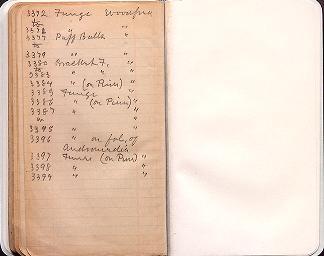 3372 Funge Woodfra
to
3376 " "
3377 Puff Balls "
to
3379 " "
3380 Bracket F. "
to
3383 " "
3384 " (on Pine) "
3385 Funge "
3386 " (on Pine) "
3387 " "
3395 " "
3396 " on fol. of
Andromeda
3397 Funge (on Pine) "
3398 " "
3399 " "